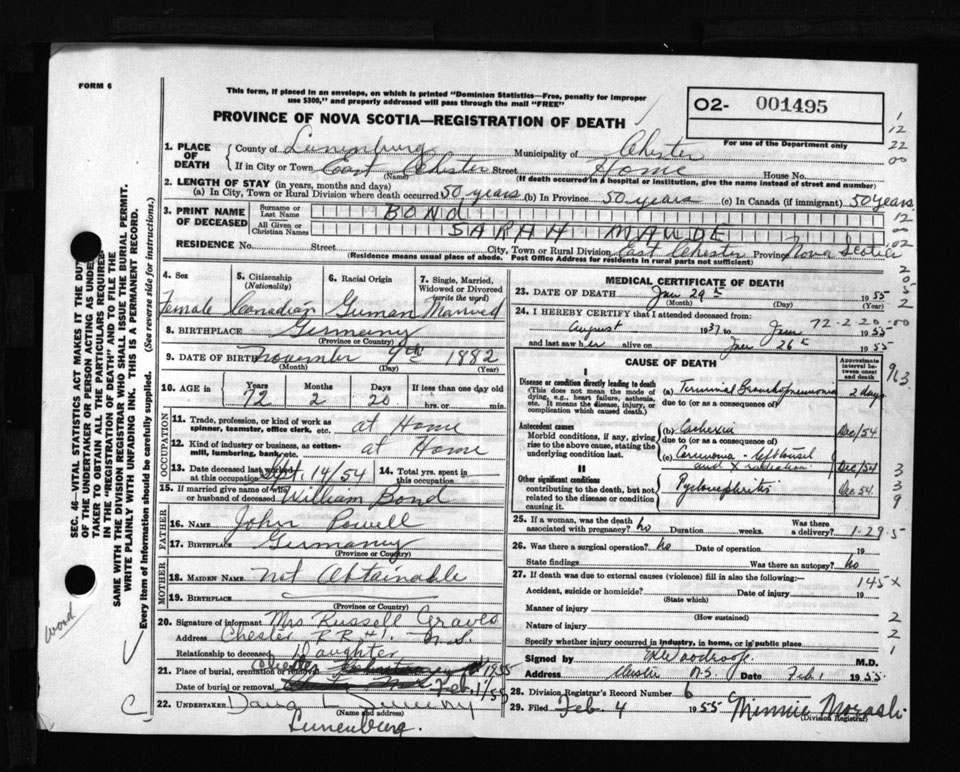 FORM 6
This form, if placed in an envelope, on which is printed "Dominion Statistics—Free, penalty for improper
use $300," and properly addressed will pass through the mail "FREE"
PROVINCE OF NOVA SCOTIA—REGISTRATION OF DEATH
O2- 001495
For use of the Department only
SEC. 46—VITAL STATISTICS ACT MAKES IT THE DUTY
OF THE UNDERTAKER OR PERSON ACTING AS UNDER-
TAKER TO OBTAIN ALL THE PARTICULARS REQUIRED
IN THE "REGISTRATION OF DEATH" AND TO FILE THE
SAME WITH THE DIVISION REGISTRAR WHO SHALL ISSUE THE BURIAL PERMIT.
WRITE PLAINLY WITH UNFADING INK. THIS IS A PERMANENT RECORD.
Every item of information should be carefully supplied. (See reverse side for instructions.)
1. PLACE OF DEATH County of Lunenburg Municipality of Chester
If in City or Town East Chester (Name) Street Home House No.
(If death occurred in a hospital or institution, give the name instead of street and number)
2. LENGTH OF STAY (in years, months and days)
(a) In City, Town or Rural Division where death occurred 50 years (b) In Province 50 years (c) In Canada (if immigrant) 50 years
3. PRINT NAME OF DECEASED Surname or Last Name BOND
All Given or Christian Names SARAH MAUDE
RESIDENCE No. Street City, Town or Rural Division East Chester Province Nova Scotia
(Residence means usual place of abode. Post Office Address for residents in rural parts not sufficient)
4. Sex Female
5. Citizenship (Nationality) Canadian
6. Racial Origin German
7. Single, Married, Widowed or Divorced (write the word) Married
8. BIRTHPLACE Germany
(Province or Country)
9. DATE OF BIRTH November 9th 1882
(Month) (Day) (Year)
10. AGE in Years 72 Months 2 Days 20 If less than one day old hrs. or min.
OCCUPATION
11. Trade, profession, or kind of work as spinner, teamster, office clerk, etc. at Home
12. Kind of industry or business, as cotton-mill, lumbering, bank, etc. at Home
13. Date deceased last worked at this occupation Sept. 14/54 14. Total yrs. spent in this occupation
15. If married give name of wife or husband of deceased William Bond
FATHER
16. NAME John Powell
17. BIRTHPLACE Germany
(Province or Country)
MOTHER
18. MAIDEN NAME Not Obtainable
19. BIRTHPLACE
(Province or Country)
20. Signature of informant Mrs Russell Graves
Address Chester R R #1. N.S.
Relationship to deceased Daughter
21. Place of burial, cremation or removal Chester 1955
Date of burial or removal Feb. 1/55
22. UNDERTAKER
(Name and address)
Lunenburg.
MEDICAL CERTIFICATE OF DEATH
23. DATE OF DEATH Jan 29th 1955
(Month) (Day)
24. I HEREBY CERTIFY that I attended deceased from:
August 1937 to Jan 1955
72-2-20-00
and last saw her alive on Jan 26th 1955
CAUSE OF DEATH
Approximate interval between onset and death
I
Disease or condition directly leading to death (a) Terminal Bronchopneumonia 2 days
(This does not mean the mode of dying, e.g., heart failure, asthenia, etc. It means the disease, injury, or complication which caused death.)
due to (or as a consequence of)
Antecedent causes (b) Cachexia Dec/54
Morbid conditions, if any, giving rise to the above cause, stating the underlying condition last.
due to (or as a consequence of)
(c) Carcinoma - left tonsil
and X radiation Dec/54
II
Other significant conditions Pyelonephritis Dec 54.
contributing to the death, but not related to the disease or condition causing it.
25. If a woman, was the death associated with pregnancy? no Duration weeks. Was there a delivery? 1-29
26. Was there a surgical operation? no Date of operation 19
State findings Was there an autopsy? no
27. If death was due to external causes (violence) fill in also the following:—
145 x
Accident, suicide or homicide? Date of injury 19
(State which)
Manner of injury
(How sustained)
Nature of injury
Specify whether injury occurred in industry, in home, or in public place
Signed by M.D.
Address Chester N.S. Date Feb. 1 1955
28. Division Registrar's Record Number 6
29. Filed Feb. 4 1955 Minnie Morash
(Division Registrar)
1
12
22
00
12
00
02
2
0
5
2
963
3
3
9
5
2
2
1
word
C